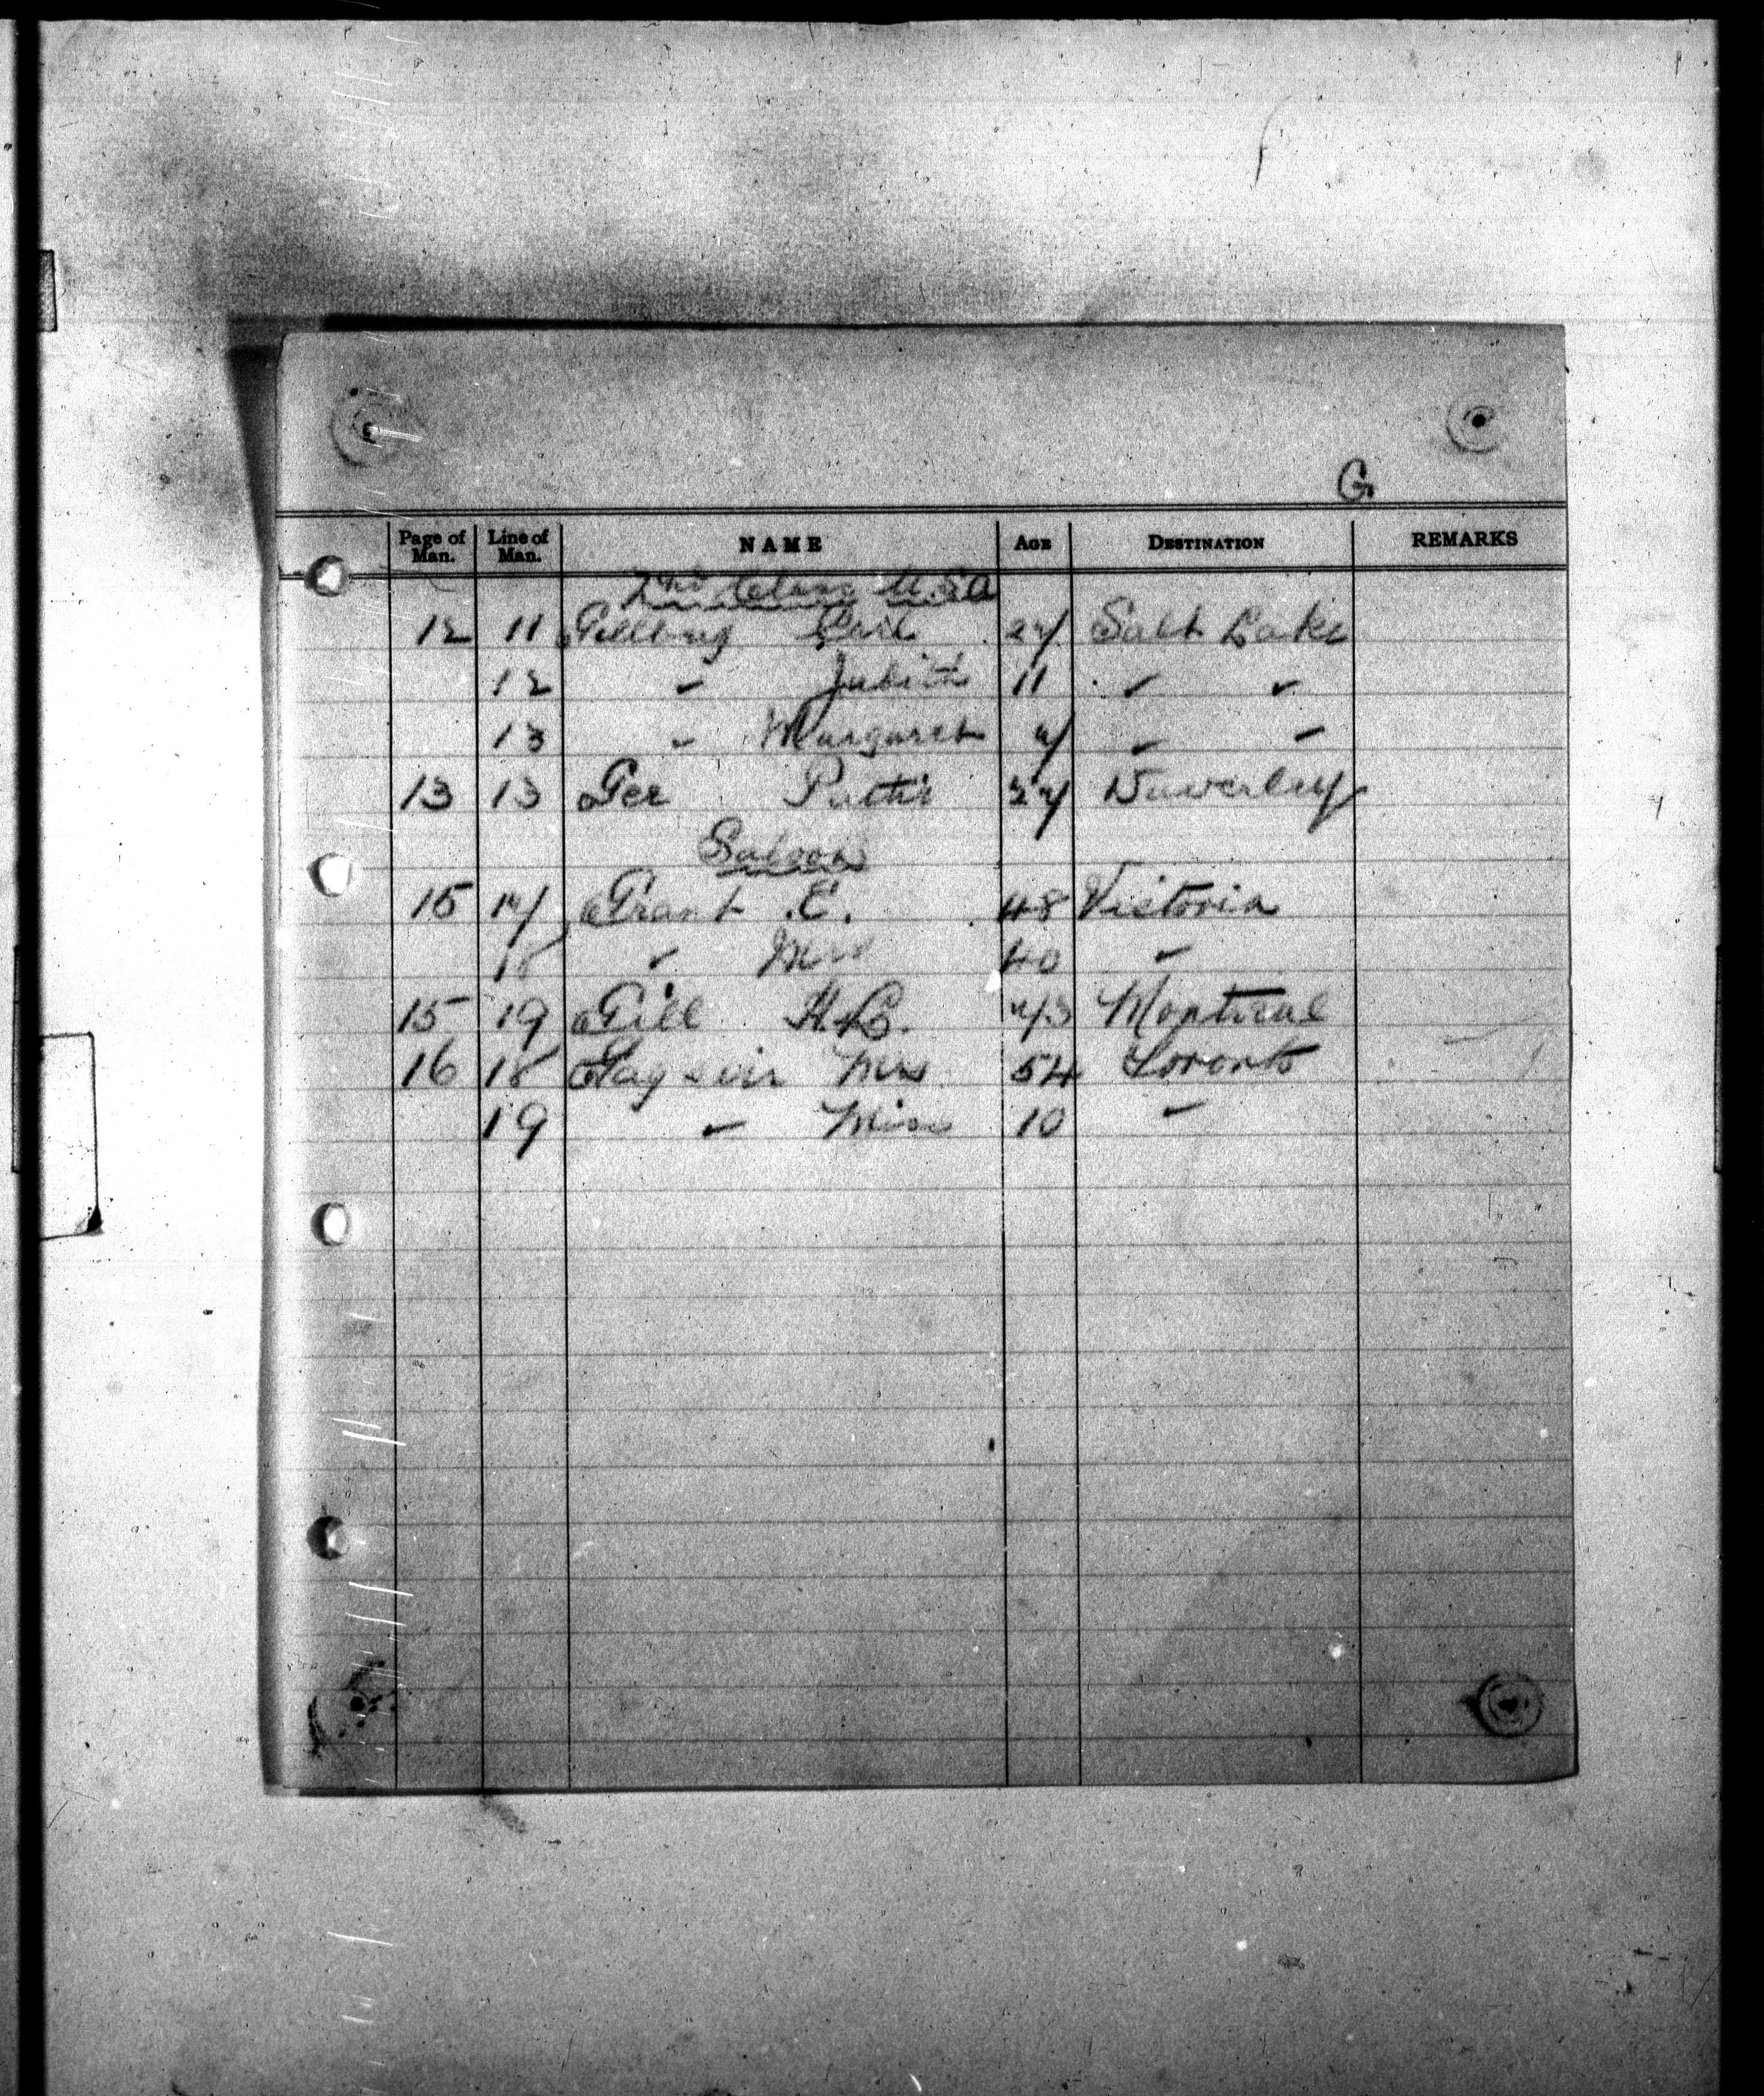 G
Page of Man. Line of Man. NAME AGE DESTINATION REMARKS
2nd Class U.S.A
12 11 Gillberg 27 Salt Lake
12 " Judith 11 " "
13 " Margaret 7 " "
13 13 Gee 27
Saloon
15 17 Grant E. 48 Victoria
18 " Mrs 40 "
15 19 Gill H.L. 73 Montreal
16 18 Mrs 54 Toronto
19 " Miss 10 "